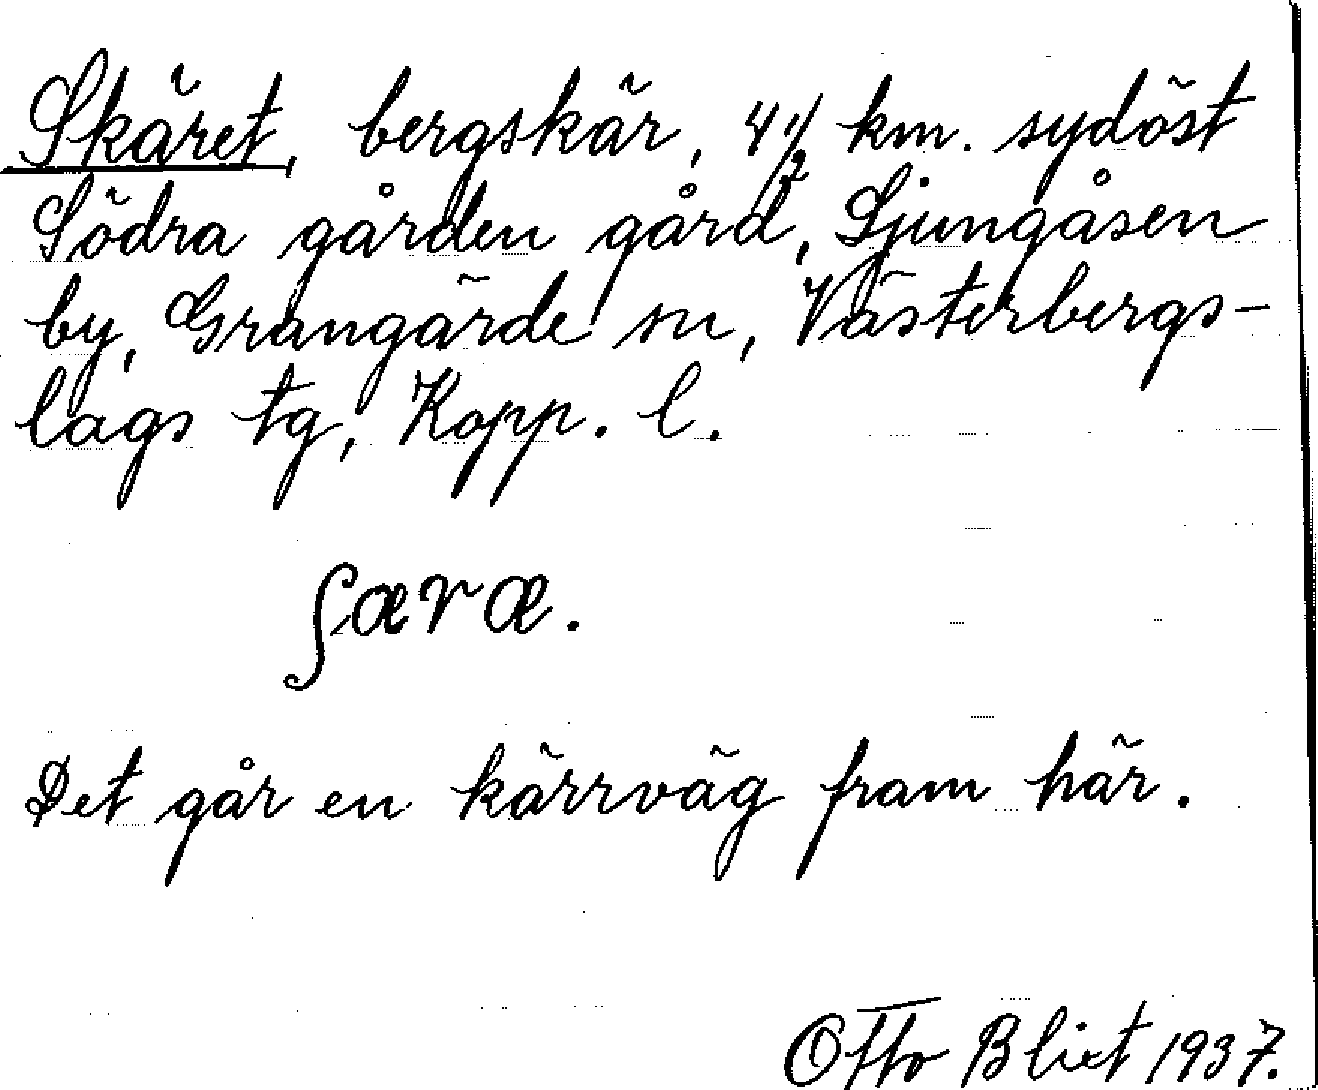 Skäret, bergskär, 4 1/2 km. sydöst
Södra gården gård, Ljungåsen
by, Grangärde sn, Västerbergs-
lags tg, Kopp. l.
ʃæræ.
Det går en kärrväg fram här.
Otto Blixt 1937.